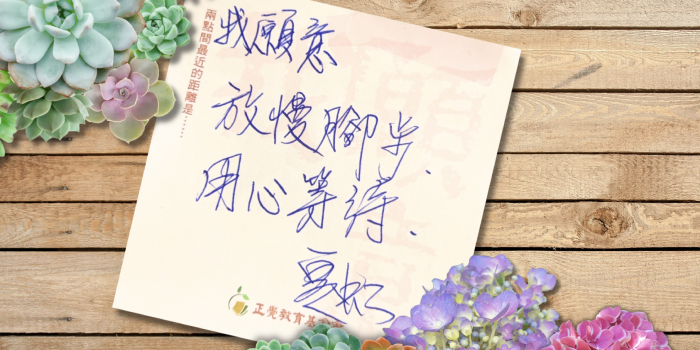 兩點間最近的距離是……
我願意
放慢腳步.
用心等待.
夏虹
正覺教育基